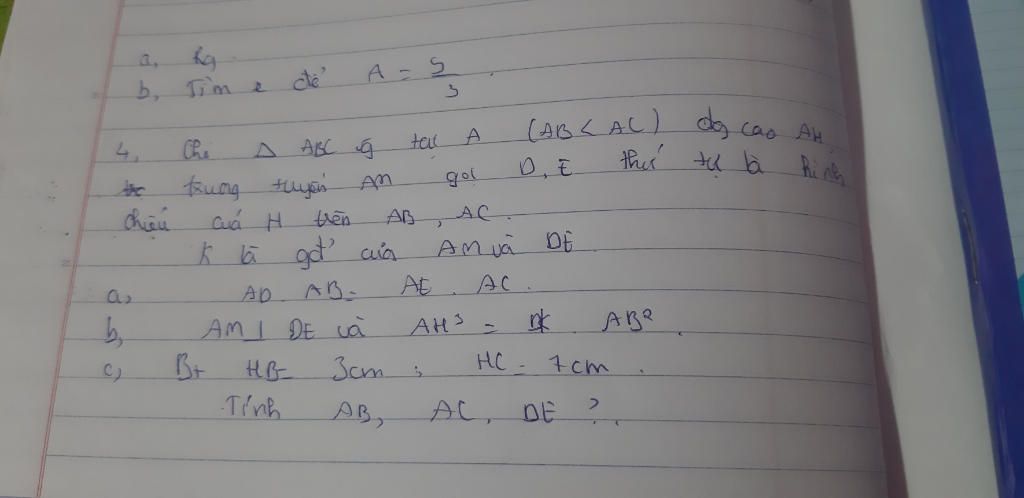 a, Rg
b, Tìm x để A = 5/3.
4, Cho Δ ABC vg tại A (AB < AC) đg cao AH,
trung tuyến AM gọi D, E thứ tự là hình
chiếu của H trên AB, AC.
K là gđ của AM và DE
a, AD. AB = AE. AC.
b, AM ⊥ DE và AH³ = DK. AB².
c, Bt HB = 3cm; HC = 7cm.
Tính AB, AC, DE ?.